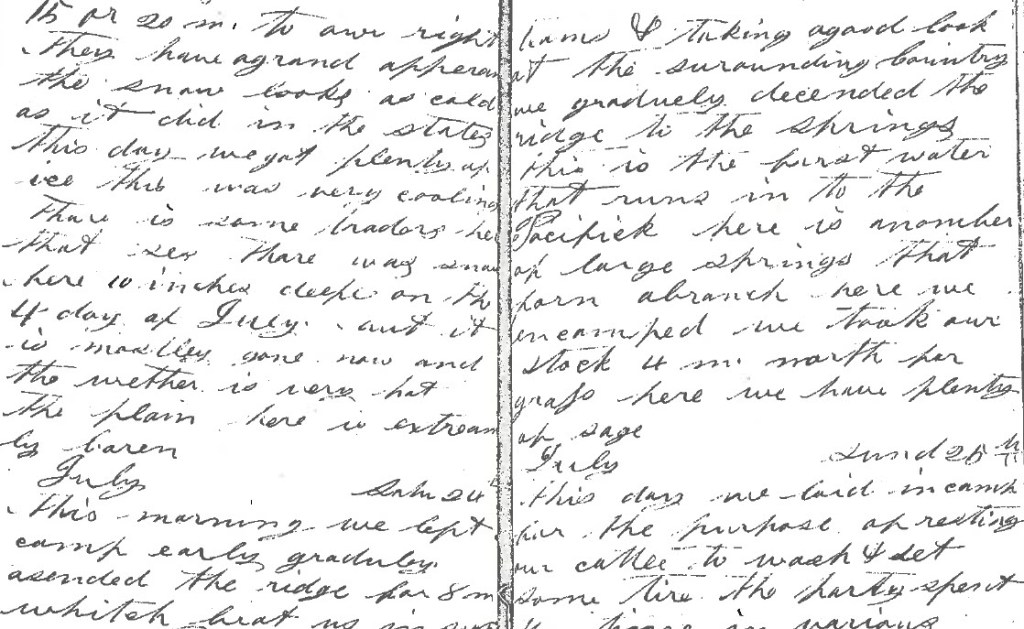 15 or 20 m. to our right
They have agrand apperan
the snow looks as cold
as it did in the states
this day wegot plenty of
ice this was very cooling
thare is some tradors he
that ses thare was snow
here 10 inches deepe on th
4 day of July. but it
is mostley gone now and
the wether is very hot
the plain here is extream
ly baren
July Satu 24
this morning we left
camp early graduley
asended the ridge for 8 m
whitch brot us in
& taking agood look
at the surounding Countrey
we graduely decended the
ridge to the springs
this is the furst water
that runs in to the
Pacifick here is anomber
of large springs that
forn abranch here we
encamped we took our
stock 4 m. north for
grass here we have plenty
of sage
July Sund 25
this day we laid incamp
for the purpose of resting
our cattle to wash & set
some tire the party spent
in various